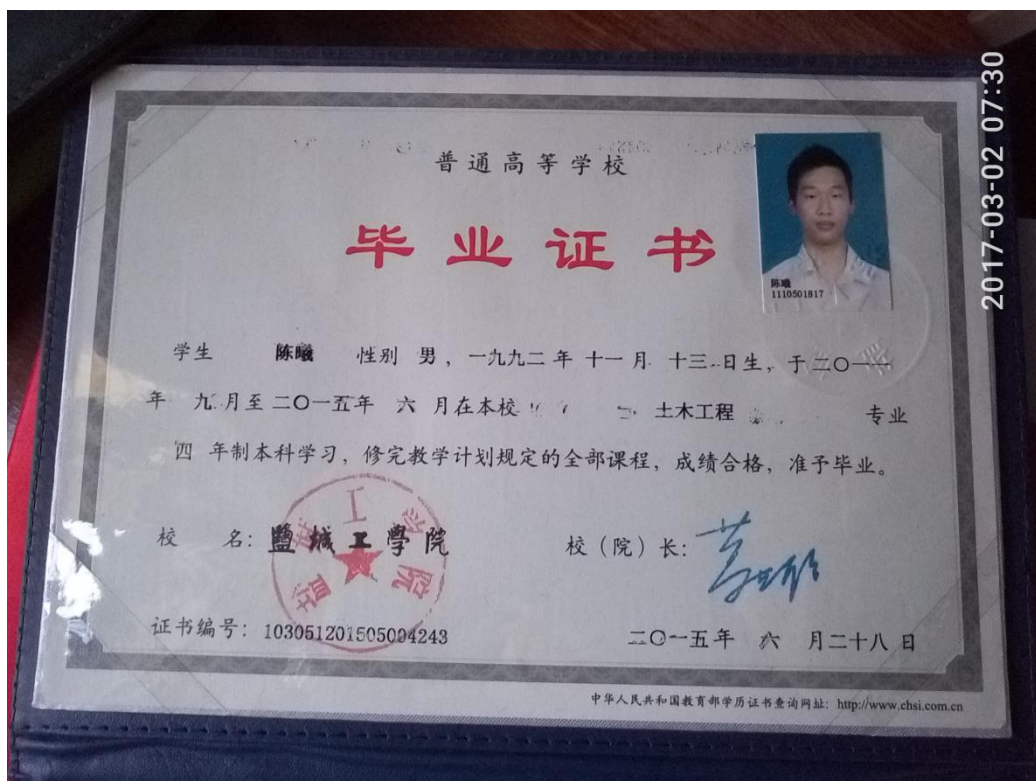 普通高等学校
毕业证书
陈曦
1110501817
学生 陈曦 性别 男，一九九二年 十一月 十三日生，于二〇一一
年 九月至二〇一五年 六 月在本校 土木工程 专业
四 年制本科学习，修完教学计划规定的全部课程，成绩合格，准予毕业。
校 名：鹽城工學院
校（院）长：
证书编号：103051201505004243
二〇一五年 六 月二十八日
中华人民共和国教育部学历证书查询网址：http://www.chsi.com.cn
2017-03-02 07:30